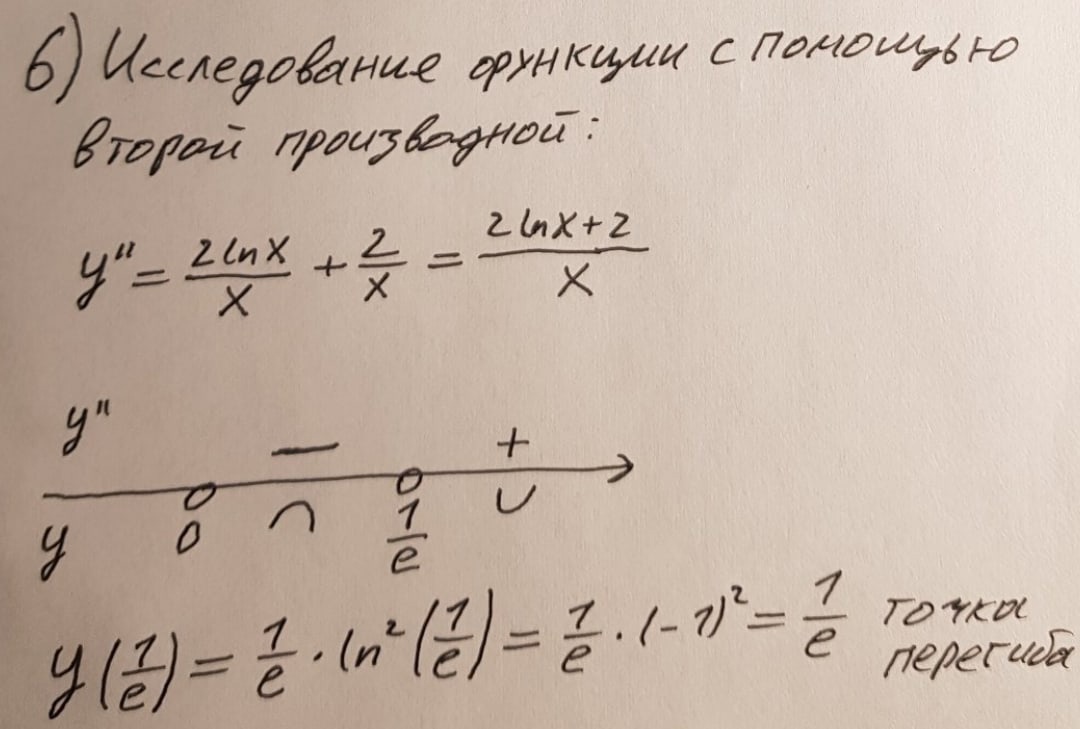 6) Исследование функции с помощью
второй производной:
y'' = 2 ln x / x + 2 / x = (2 ln x + 2) / x
y'' − +
y 0 ∩ 1/e ∪
y(1/e) = 1/e · ln²(1/e) = 1/e · (-1)² = 1/e точка
перегиба